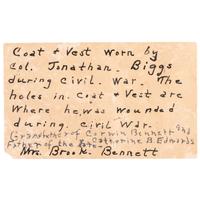 Coat & Vest worn by
Col. Jonathan. Biggs
during civil. war. The
holes in. Coat & Vest are
Where he, was wounded
during. civil War.
Grandfather of Corwin Bennett and
Father of the Catherine B. Edwards
Mrs. Brook. Bennett